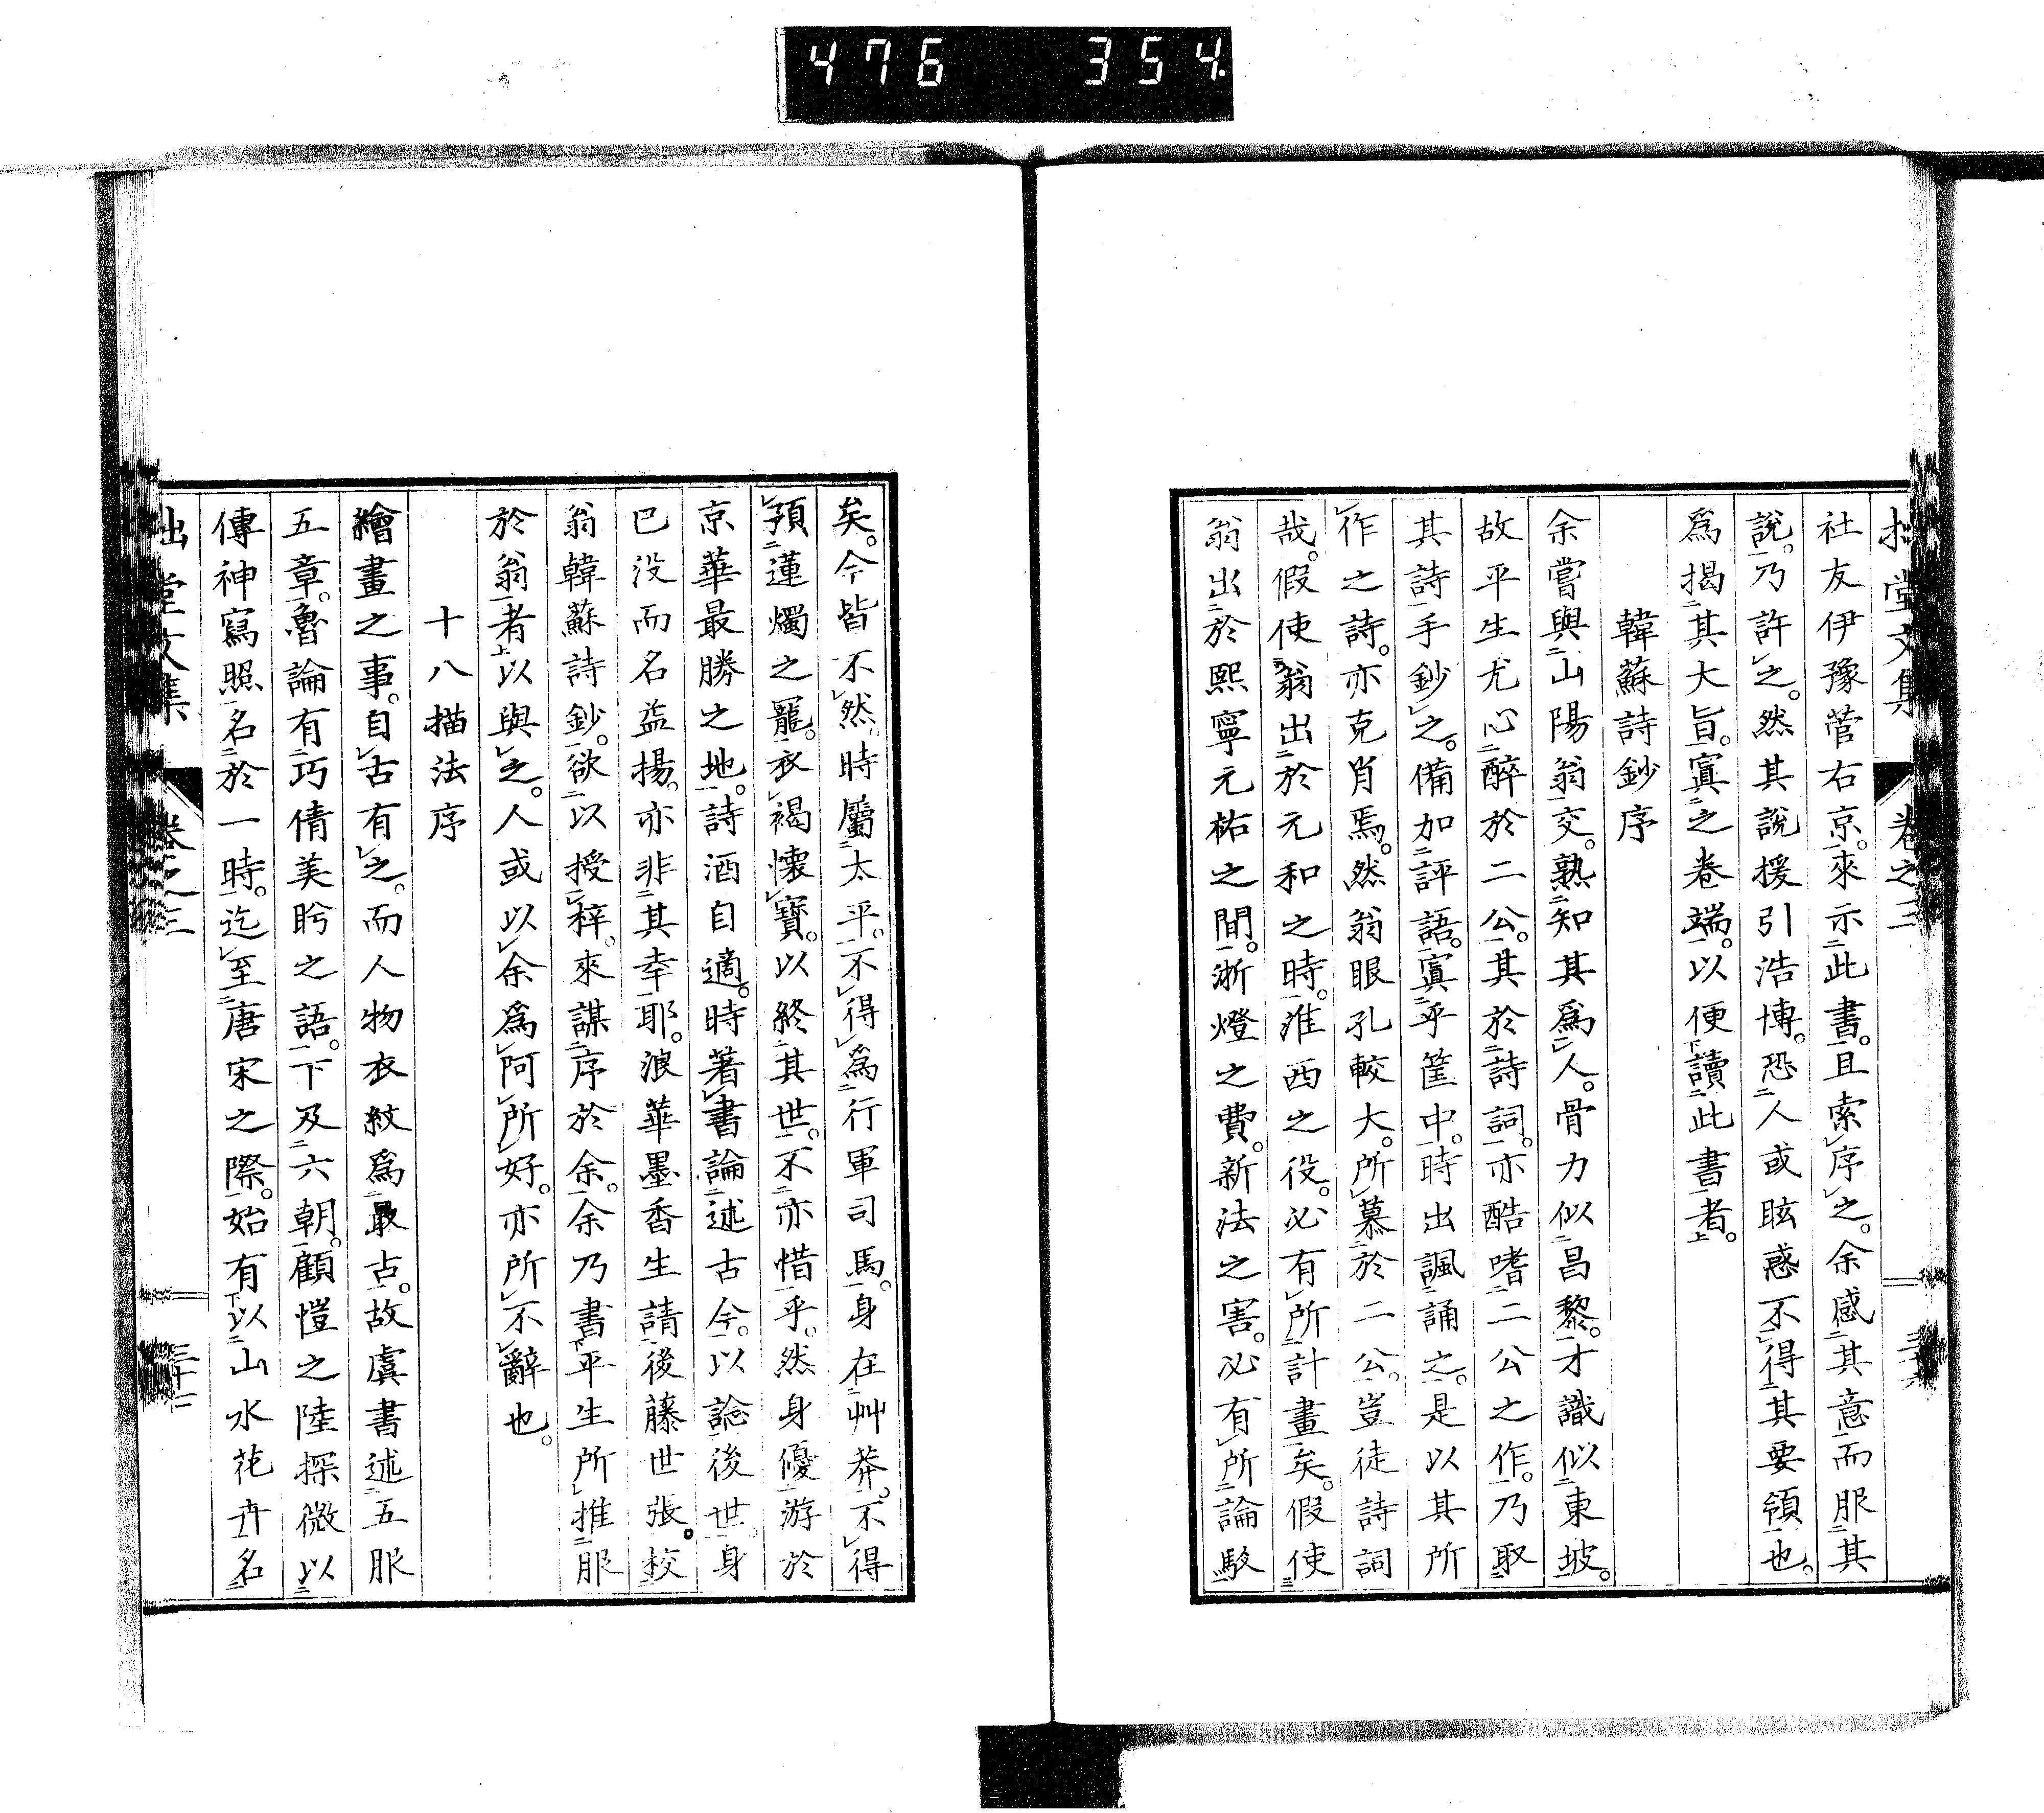 476 354
堂文集 卷之三
社友伊豫菅右京來示此書。且索序之。余感其意而服其
說。乃許之。然其說援引浩博。恐人或眩惑不得其要領也。
爲揭其大旨。寘之卷端。以便讀此書者。
韓蘇詩鈔序
余嘗與山陽翁交。熟知其爲人。骨力似昌黎。才識似東坡。
故平生尤心醉於二公。其於詩詞。亦酷嗜二公之作。乃取
其詩手鈔之。備加評語。寘乎筐中。時出諷誦之。是以其所
作之詩。亦克肖焉。然翁眼孔較大。所慕於二公。豈徒詩詞
哉。假使翁出於元和之時。淮西之役。必有所計畫矣。假使
翁出於熙寧元祐之間。浙燈之費。新法之害。必有所論駁
矣。今皆不然。時屬太平。不得爲行軍司馬。身在艸莽。不得
預蓮燭之寵。衣褐懷寶。以終其世。不亦惜乎。然身優游於
京華最勝之地。詩酒自適。時著書論述古今。以諗後世。身
已没而名益揚。亦非其幸耶。浪華墨香生請後藤世張。校
翁韓蘇詩鈔。欲以授梓。來謀序於余。余乃書平生所推服
於翁者以與之。人或以余爲阿所好。亦所不辭也。
十八描法序
繪畫之事。自古有之。而人物衣紋爲最古。故虞書述五服
五章。魯論有巧倩美盻之語。下及六朝。顧愷之陸探微以
傳神寫照名於一時。迄至唐宋之際。始有以山水花卉名
拙堂文集 卷之三 三十七